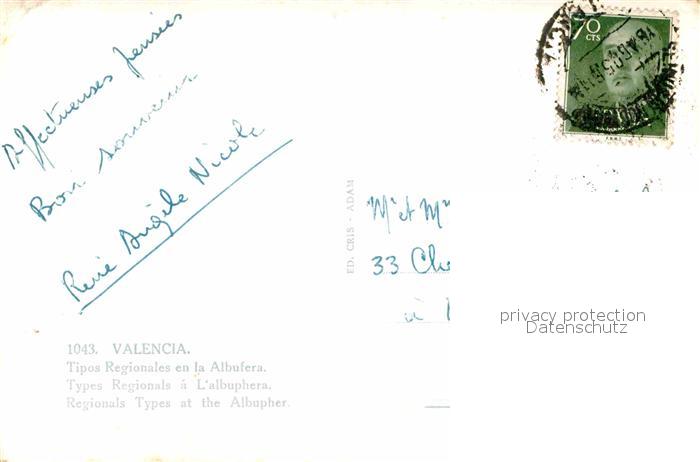 Affectueuses pensées
Bon souvenir
René Angèle Nicole
1043. VALENCIA.
Tipos Regionales en la Albufera.
Types Regionals á L'albuphera.
Regionals Types at the Albupher.
ED. CRIS - ADAM
70
CTS
Mr et M
33 Ch
à
privacy protection
Datenschutz